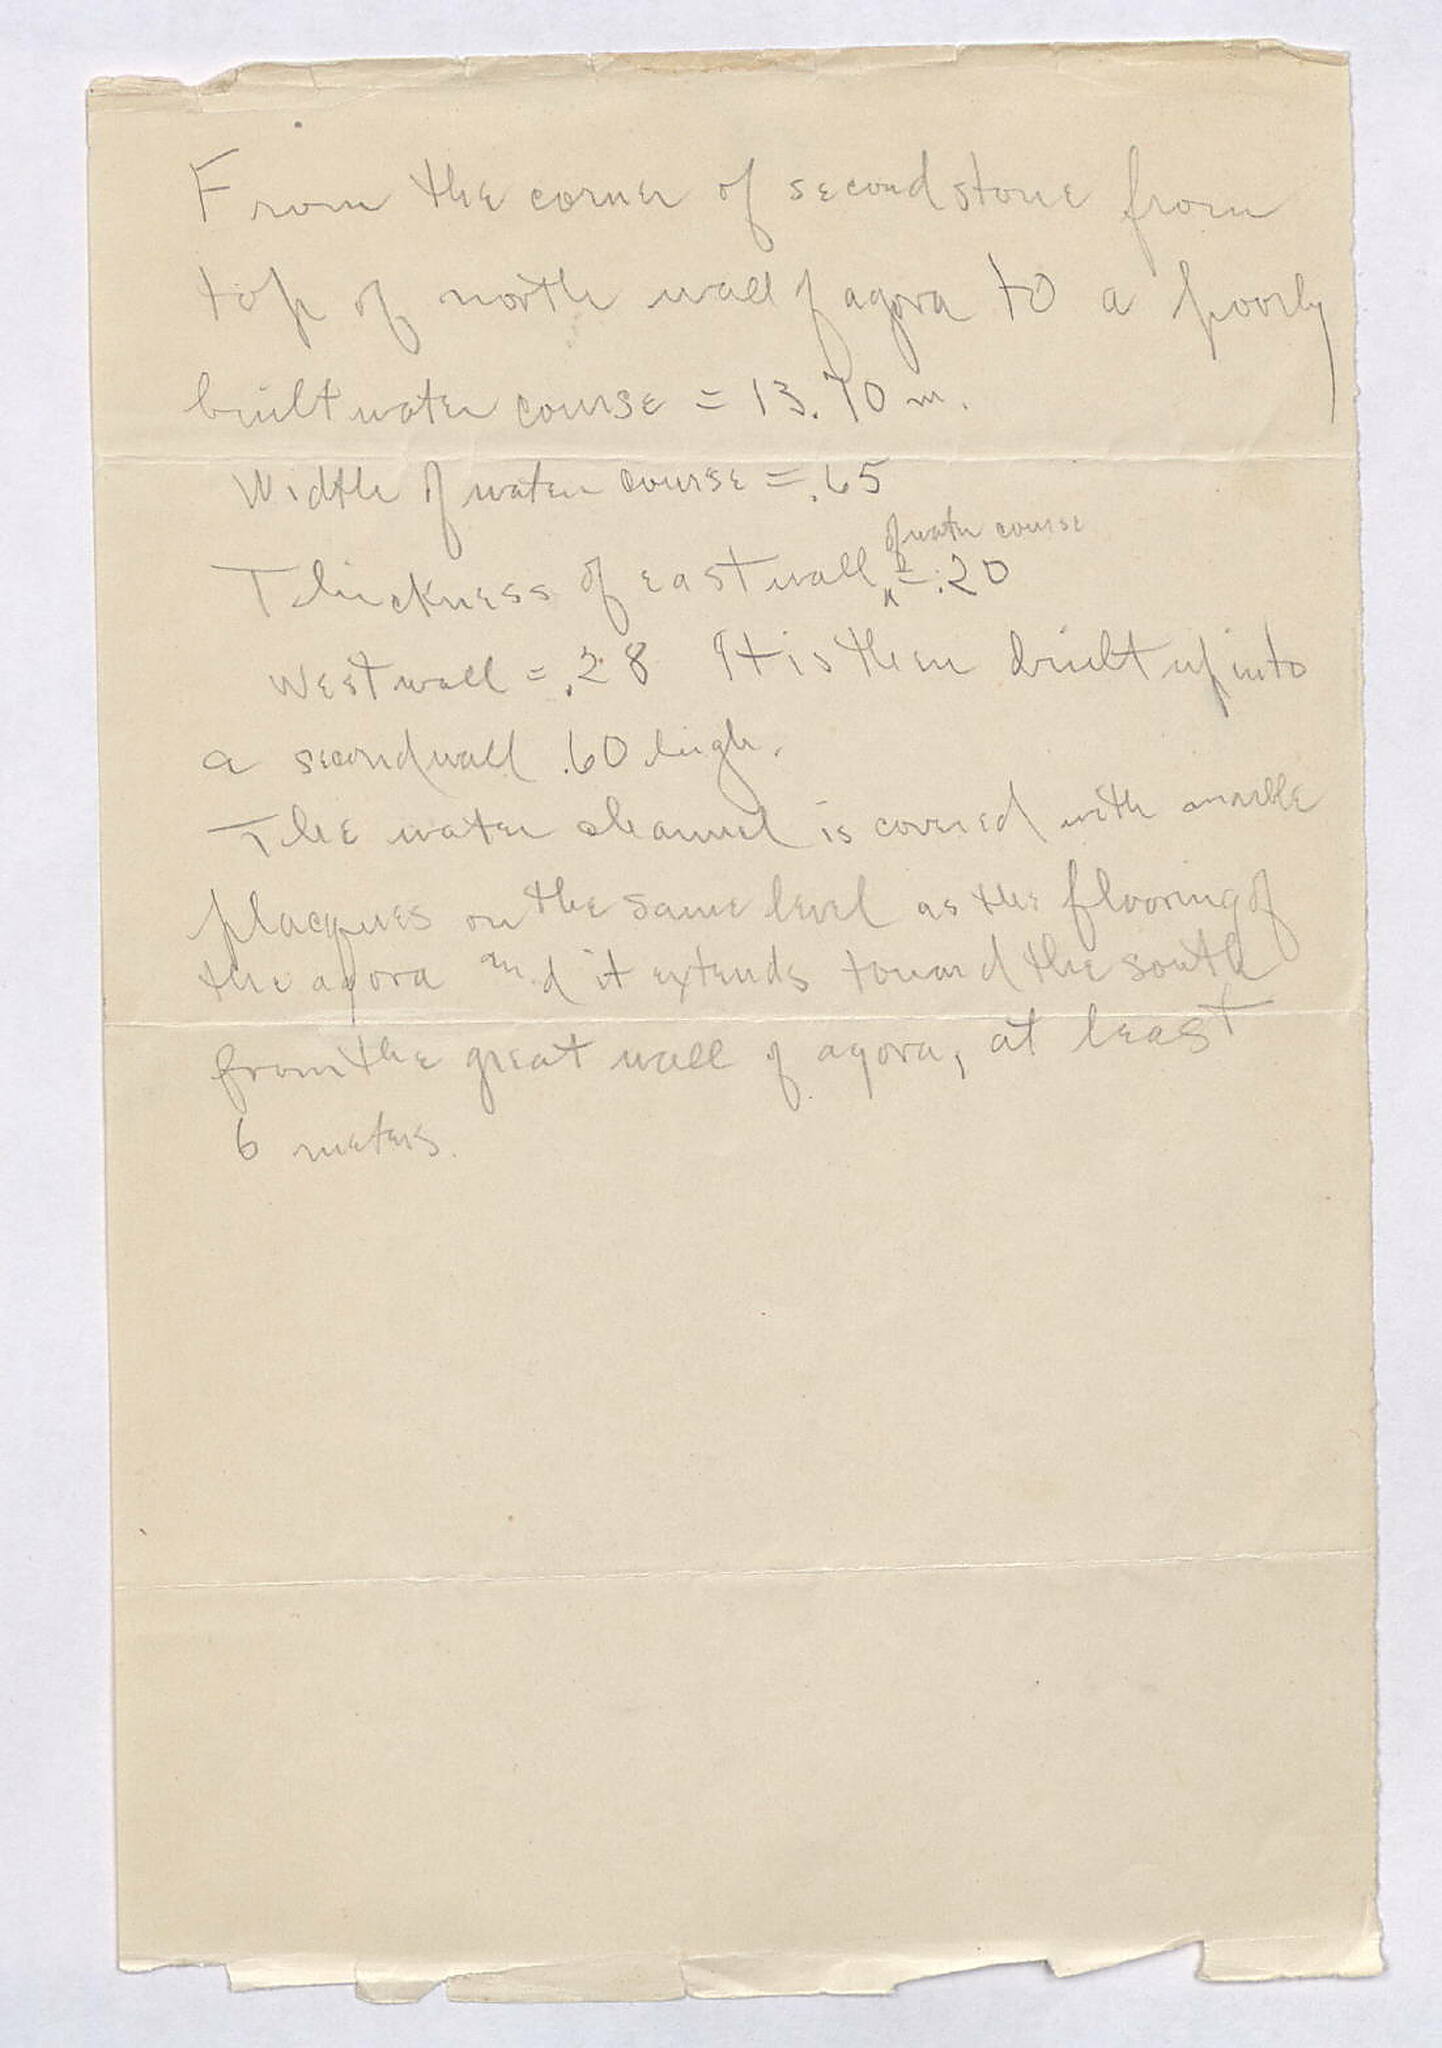 From the corner of second stone from
top of north wall of agora to a poorly
built water course = 13.70 m.
Width of water course = .65
of water course
Thickness of east wall ^ = .20
West wall = .28 It is then built up into
a second wall .60 high.
The water channel is covered with marble
placques on the same level as the flooring of
the agora and it extends toward the south
from the great wall of agora, at least
6 meters.